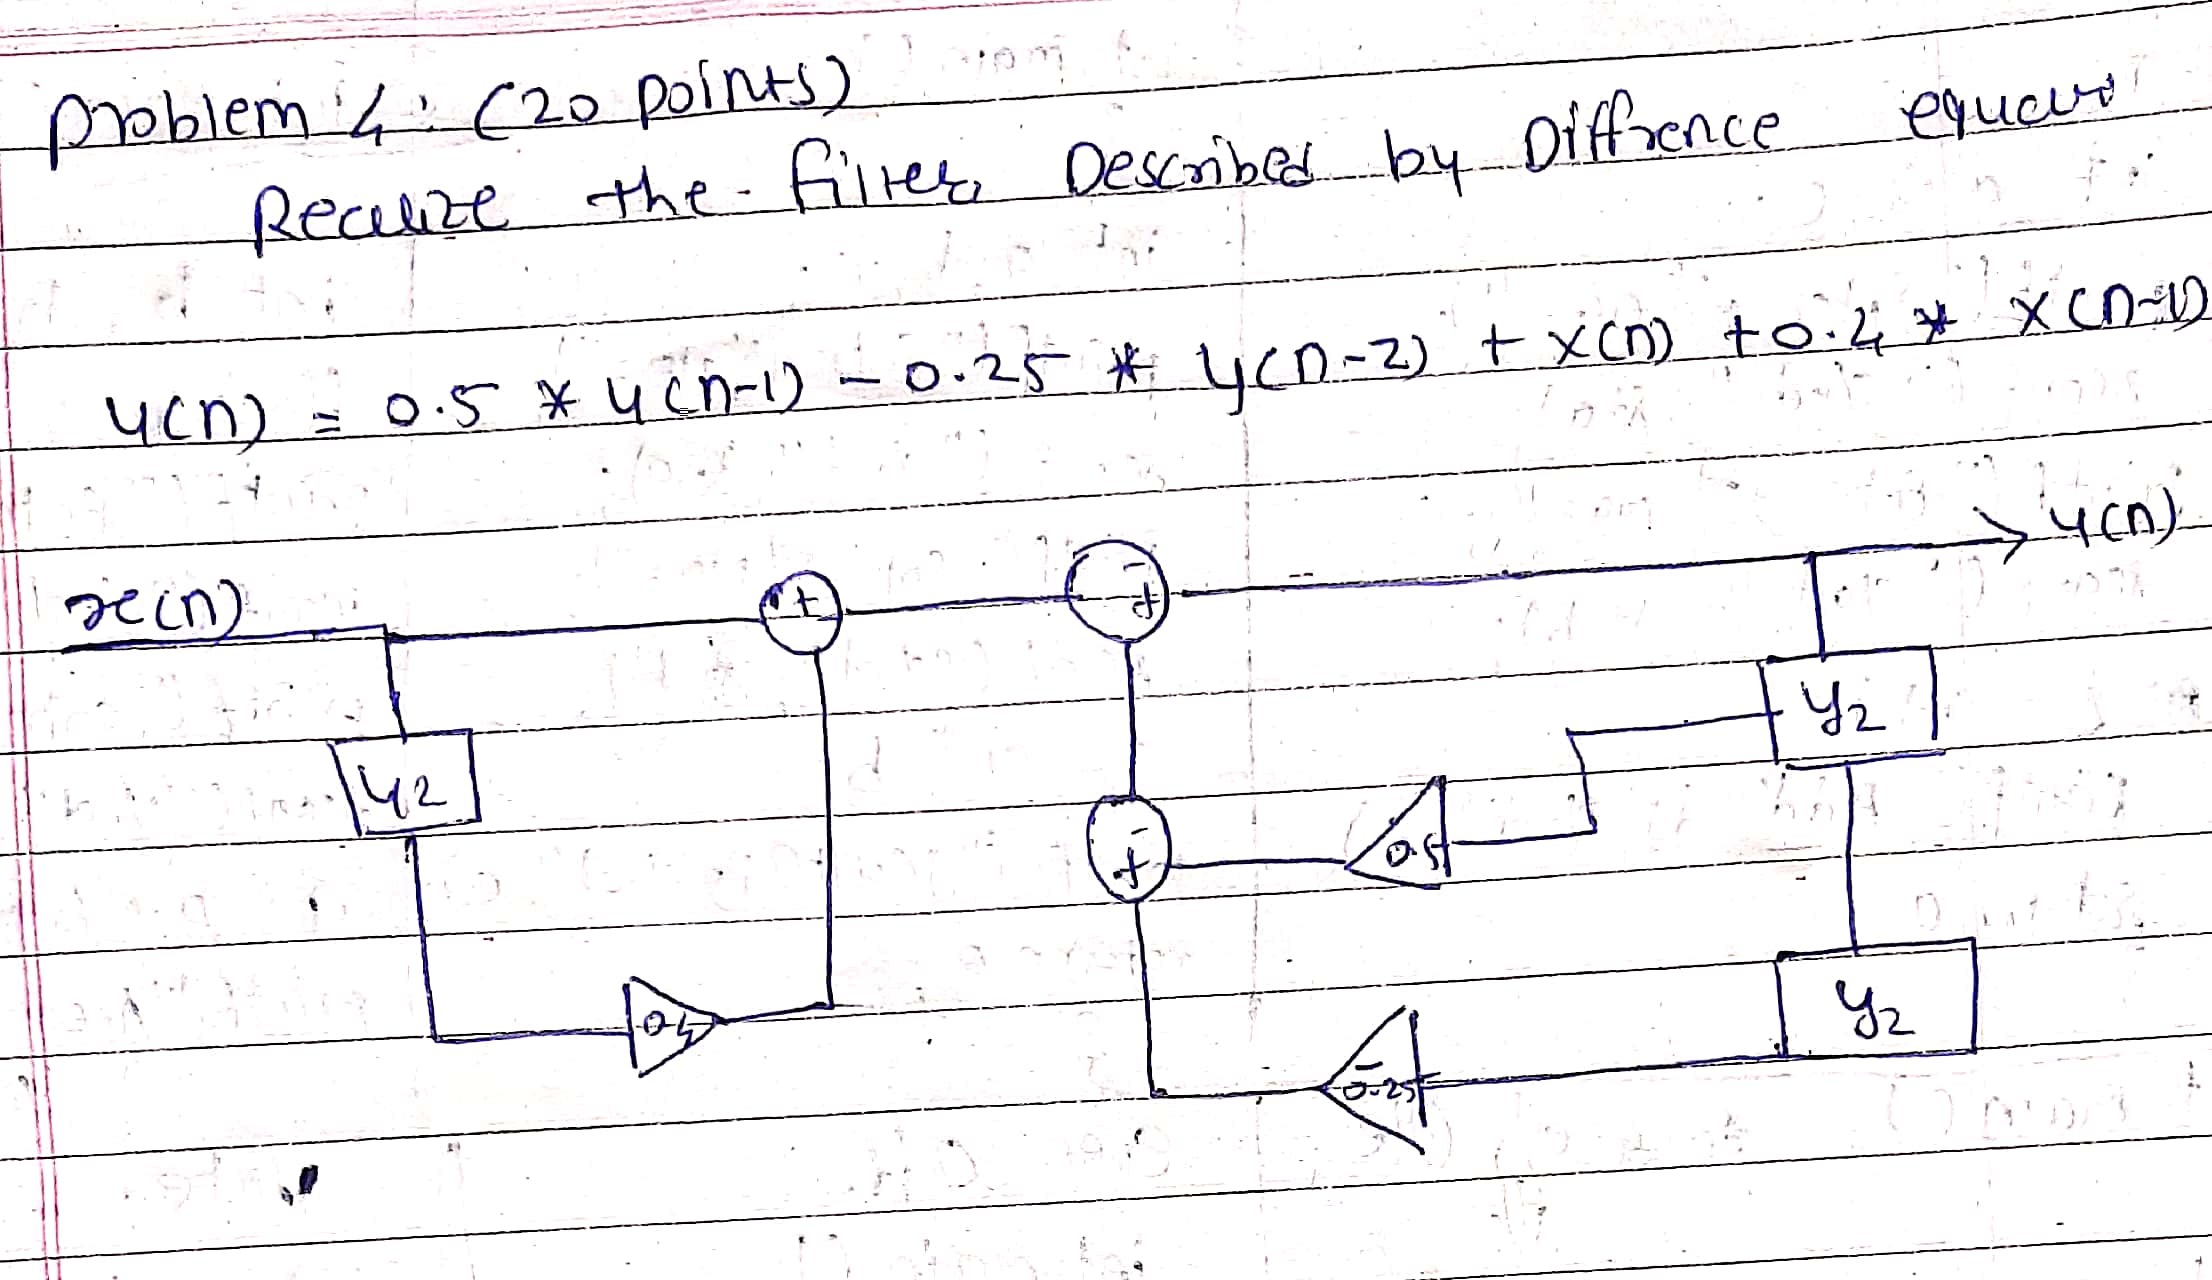 Problem 4: (20 points)
Realize the filter Described by Diffrence
y(n) = 0.5 * y(n-1) - 0.25 * y(n-2) + x(n) + 0.4 * x(n-1)
y(n)
x(n)
+
+
y2
y2
0.5
+
y2
0.4
-0.25